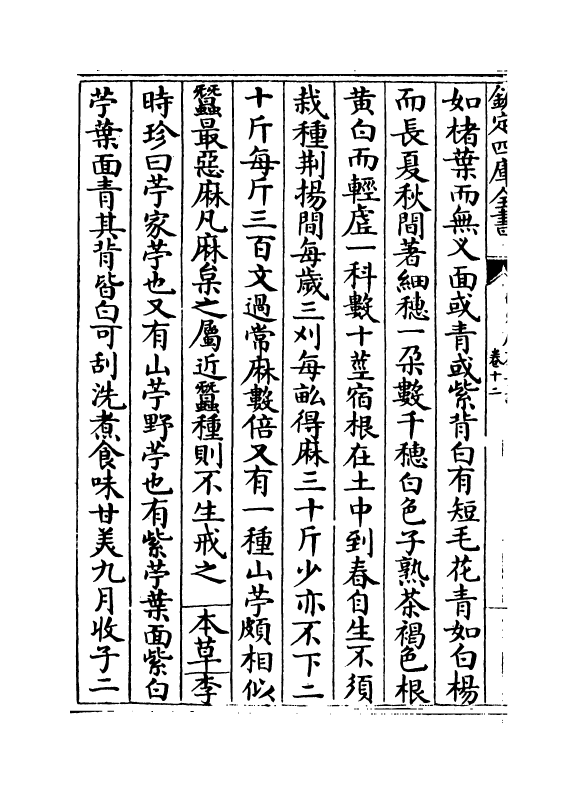 欽定四庫全書
卷十二
如楮葉而無乂面或青或紫背白有短毛花青如白楊
而長夏秋間著細穗一朶數千穗白色子熟茶褐色根
黄白而輕虚一科數十莖宿根在土中到春自生不須
栽種荆揚間每歲三刈每畝得麻三十斤少亦不下二
十斤每斤三百文過常麻數倍又有一種山苧頗相似
蠶最惡麻凡麻枲之屬近蠶種則不生戒之 本草李
時珍曰苧家苧也又有山苧野苧也有紫苧葉面紫白
苧葉面青其背皆白可刮洗煮食味甘美九月收子二